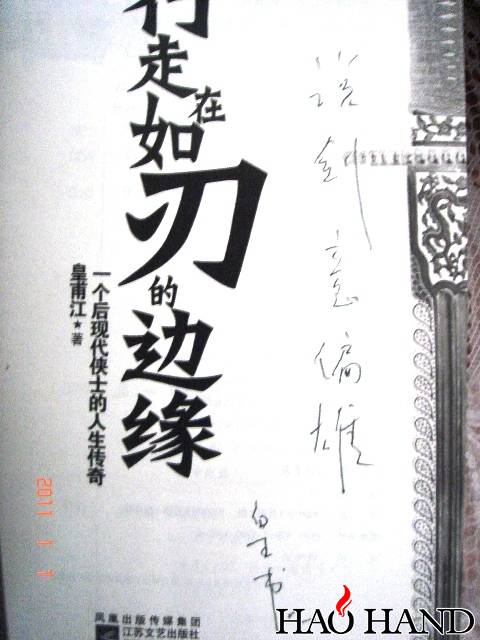 说剑意偏雄
行走在如刃的边缘
一个后现代侠士的人生传奇
皇甫江★著
2011 1 1
凤凰出版传媒集团
江苏文艺出版社
HAO HAND